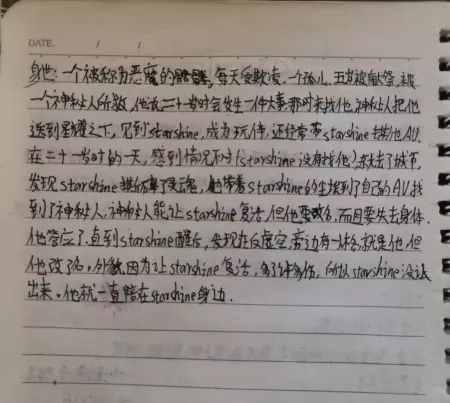 DATE. / /
身世:一个被称为恶魔的骷髅,每天受欺凌,一个孤儿,五岁被献祭,被
一个神秘人所救,他说二十一岁时会发生一件大事,那时来找他,神秘人把他
送到星耀之下,见到starshine,成为玩伴,还经常带starshine去其他AU.
在二十一岁时的一天,感到情况不对(starshine没有找他),就去了城下,
发现starshine 灵魂,他带着starshine的尘埃到了自己的AU,找
到了神秘人,神秘人能让starshine复活,但他要改名,而且要失去身体.
他答应了.直到starshine醒后,发现在虚空,旁边有一 就是他,但
他改了名,外貌因为让starshine复活,多了许多伤,所以starshine没认
出来。他就一直陪在starshine身边.